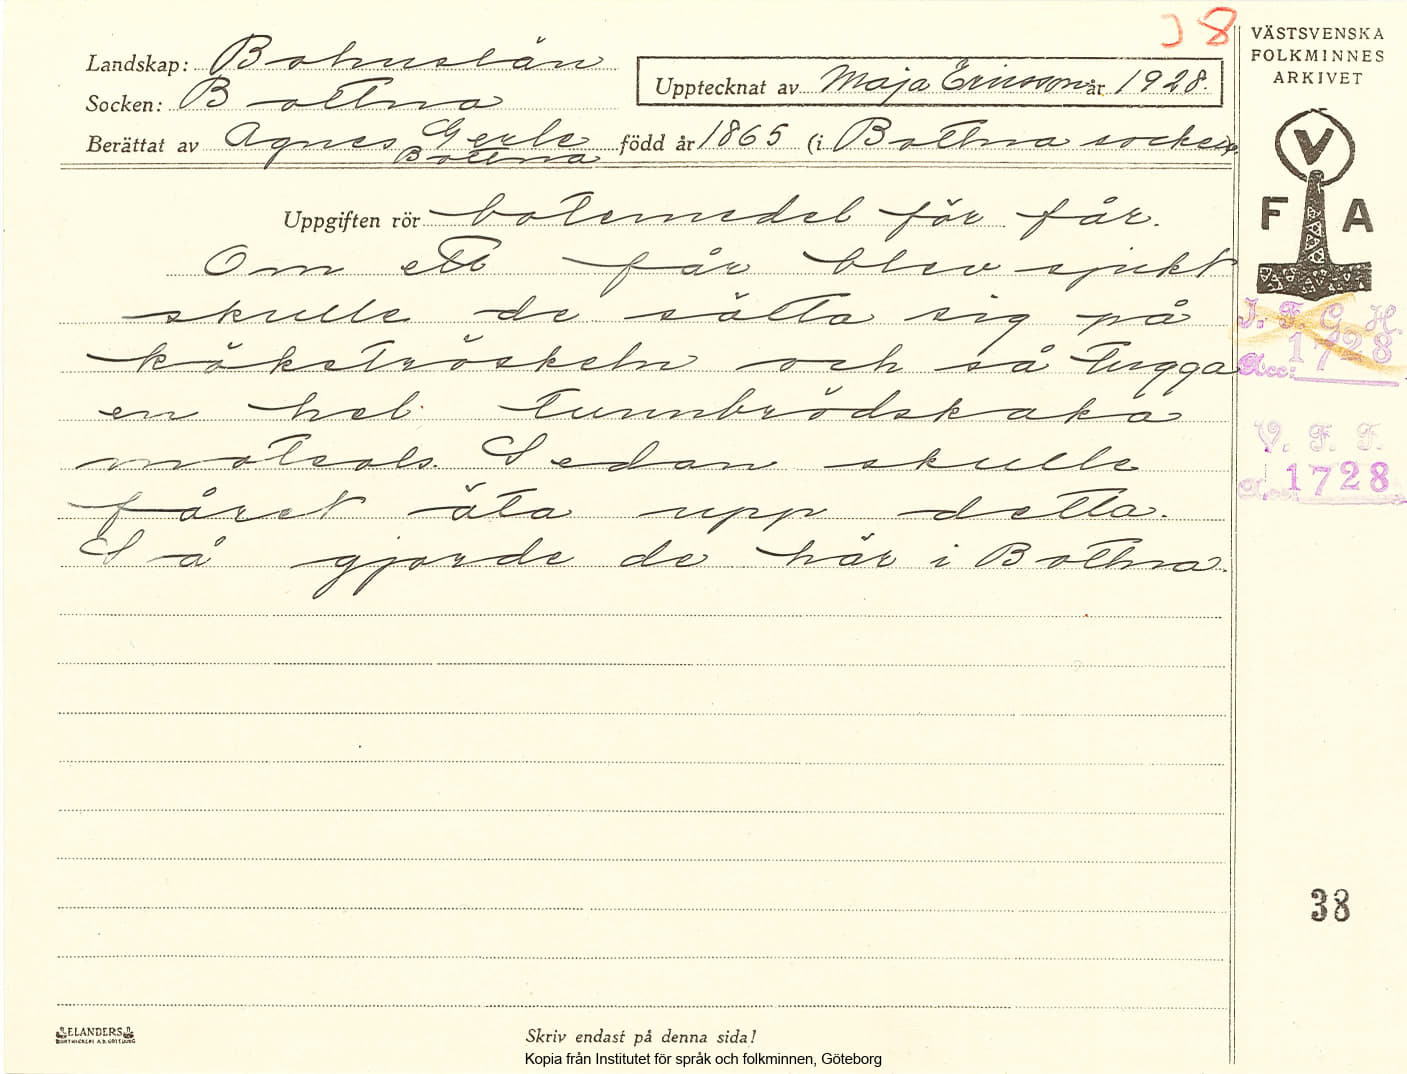 38
VÄSTSVENSKA
FOLKMINNES
ARKIVET
Landskap: Bohuslän
Socken: Bottna
Upptecknat av Maja Ericsson år 1928.
Berättat av Agnes Gerle född år 1865 (i Bottna socken).
Bottna
V
F A
Uppgiften rör botemedel för får.
Om ett får blev sjukt
skulle de sätta sig på
kökströskeln och så tugga
en hel tunnbrödskaka
motsols. Sedan skulle
fåret äta upp detta.
Så gjorde de här i Bottna.
I. F. G. H.
Acc: 1728
V. F. F.
1728
38
ELANDERS
Skriv endast på denna sida!
Kopia från Institutet för språk och folkminnen, Göteborg